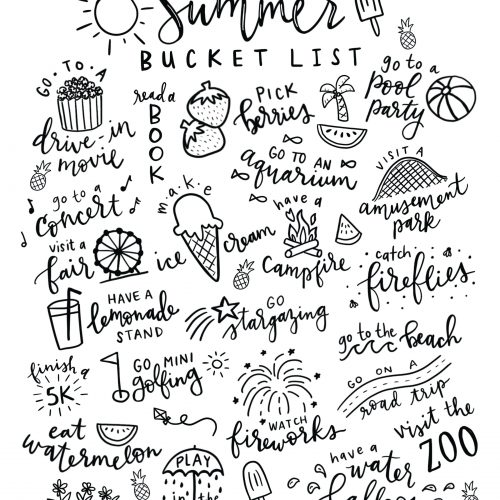 Summer
BUCKET LIST
GO TO A
drive-in
movie
read a
BOOK
PICK
berries
go to a
pool
party
GO TO AN
aquarium
VISIT A
amusement
park
go to a
Concert
make
ice cream
have a
Campfire
catch
fireflies
visit a
fair
HAVE A
lemonade
STAND
GO
stargazing
go to the beach
finish a
5K
GO MINI
golfing
WATCH
fireworks
GO ON A
road trip
eat
watermelon
visit the
ZOO
PLAY
in the
have a
water